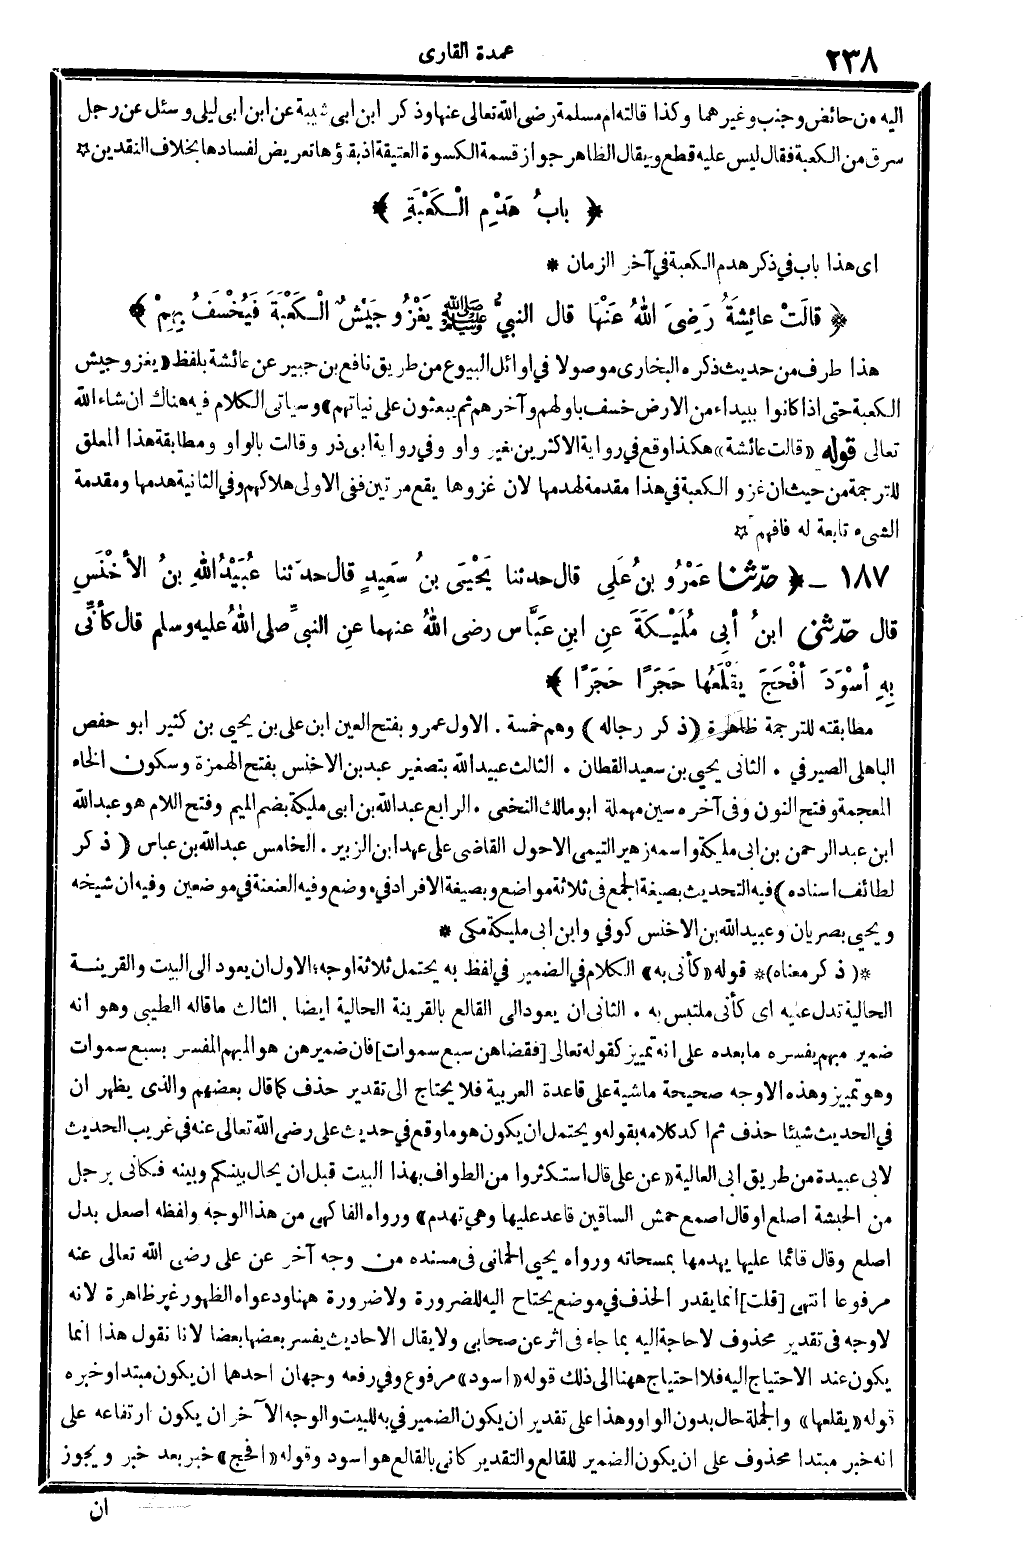 ٢٣٨
عمدة القارى
اليه من حائض وجنب وغيرهما وكذا قالته ام مسلمة رضى الله تعالى عنها وذكر ابن ابى شيبة عن ابن ابى ليلى وسئل عن رجل
سرق من الكعبة فقال ليس عليه قطع ويقال الظاهر جواز قسمة الكسوة العتيقة اذ بقاؤها تعريض لفسادها بخلاف النقدين ۞
﴿ بابُ هَدْمِ الْكَعْبَةِ ﴾
اى هذا باب في ذكر هدم الكعبة في آخر الزمان *
﴿ قالَتْ عائِشَةُ رَضِىَ اللهُ عَنْهَا قال النبيُّ ﷺ يَغْزُو جَيْشٌ الْكَعْبَةَ فَيُخْسَفُ بِهِمْ ﴾
هذا طرف من حديث ذكره البخارى موصولا في اوائل البيوع من طريق نافع بن جبير عن عائشة بلفظ «يغزو جيش
الكعبة حتى اذا كانوا ببيداء من الارض خسف باولهم وآخرهم ثم يبعثون على نياتهم» وسياتى الكلام فيه هناك ان شاء الله
تعالى قوله «قالت عائشة» هكذا وقع في رواية الاكثرين بغير واو وفي رواية ابى ذر وقالت بالواو ومطابقة هذا المعلق
للترجمة من حيث ان غزو الكعبة في هذا مقدمة لهدمها لان غزوها يقع مرتين ففى الاولى هلاكهم وفي الثانية هدمها ومقدمة
الشىء تابعة له فافهم ۞
١٨٧ ـ ﴿ حدّثنا عَمْرُو بنُ عَلِى قال حدثنا يَحْيَى بنُ سَعِيدٍ قال حدّثنا عُبَيْدُ اللهِ بنُ الأخْنَسِ
قال حدّثنى ابنُ أبِى مُلَيْكَةَ عنِ ابنِ عَبَّاس رضى اللهُ عنهما عنِ النبىِّ صلى اللهُ عليه وسلم قال كأنِّى
بِهِ أسْوَدَ أفْحَجَ يَقْلَعُها حَجَرًا حَجَرًا ﴾
مطابقته للترجمة ظاهرة (ذكر رجاله) وهم خمسة . الاول عمرو بفتح العين ابن على بن يحيى بن كثير ابو حفص
الباهلى الصيرفي . الثانى يحيى بن سعيد القطان . الثالث عبيد الله بتصغير عبد بن الاخنس بفتح الهمزة وسكون الخاء
المعجمة وفتح النون وفى آخره سين مهملة ابو مالك النخعى . الرابع عبد الله بن ابى مليكة بضم الميم وفتح اللام هو عبد الله
ابن عبد الرحمن بن ابى مليكة واسمه زهير التيمى الاحول القاضى على عهد ابن الزبير . الخامس عبد الله بن عباس ( ذكر
لطائف اسناده ) فيه التحديث بصيغة الجمع فى ثلاثة مواضع وبصيغة الافراد في موضع وفيه العنعنة في موضعين وفيه ان شيخه
ويحيى بصريان وعبيد الله بن الاخنس كوفي وابن ابى مليكة مكى *
*(ذكر معناه)* قوله «كأنى به» الكلام في الضمير في لفظ به يحتمل ثلاثة اوجه؛ الاول ان يعود الى البيت والقرينة
الحالية تدل عليه اى كأنى ملتبس به . الثانى ان يعود الى القالع بالقرينة الحالية ايضا . الثالث ما قاله الطيبى وهو انه
ضمير مبهم يفسره ما بعده على انه تمييز كقوله تعالى [فقضاهن سبع سموات] فان ضمير هن هو المبهم المفسر بسبع سموات
وهو تمييز وهذه الاوجه صحيحة ماشية على قاعدة العربية فلا يحتاج الى تقدير حذف كما قال بعضهم والذى يظهر ان
في الحديث شيئا حذف ثم اكد كلامه بقوله ويحتمل ان يكون هو ما وقع في حديث على رضى الله تعالى عنه في غريب الحديث
لابى عبيدة من طريق ابى العالية «عن على قال استكثروا من الطواف بهذا البيت قبل ان يحال بينكم وبينه فكأنى برجل
من الحبشة اصلع او قال اصمع حمش الساقين قاعد عليها وهي تهدم» ورواه الفاكهى من هذا الوجه ولفظه اصعل بدل
اصلع وقال قائما عليها يهدمها بمسحاته ورواه يحيى الحمانى فى مسنده من وجه آخر عن على رضى الله تعالى عنه
مرفوعا انتهى [قلت] انما يقدر الحذف في موضع يحتاج اليه للضرورة ولا ضرورة ههنا ودعواه الظهور غير ظاهرة لانه
لا وجه فى تقدير محذوف لا حاجة اليه بما جاء فى اثر عن صحابى ولا يقال الاحاديث يفسر بعضها بعضا لانا نقول هذا انما
يكون عند الاحتياج اليه فلا احتياج ههنا الى ذلك قوله «اسود» مرفوع وفي رفعه وجهان احدهما ان يكون مبتدا وخبره
قوله «يقلعها» والجملة حال بدون الواو وهذا على تقدير ان يكون الضمير في به للبيت والوجه الآخر ان يكون ارتفاعه على
انه خبر مبتدا محذوف على ان يكون الضمير للقالع والتقدير كانى بالقالع هو اسود وقوله «افحج» خبر بعد خبر ويجوز
ان